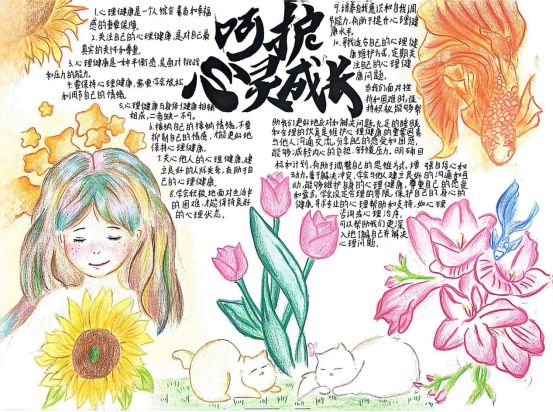 呵护
心灵成长
1.心理健康是一个人综合素质和幸福
感的重要保障.
2.关注自己的心理健康,是对自己最
真实的关怀和尊重.
3.心理健康是一种平衡感,是面对挑战
和压力的能力.
4.要保持心理健康,需要学会放松
和调节自己的情绪.
5.心理健康与身体健康相辅
相成,二者缺一不可.
6.接纳自己的情绪,不要
抑制自己的情感,才能更好地
保持心理健康.
7.关心他人的心理健康,建
立良好的人际关系,有助于自
己的心理健康.
8.学会积极地面对生活中
的困难,才能保持良好
的心理状态.
9.培养自我意识和自我调
节能力,有助于提升心理健
康水平.
10.寻找适合自己的心理健
康维护方式,定期关
注自己的心理健
康问题.
当我们面对挫
折和困难时,保
持积极能够帮
助我们更好地应对和解决问题,充足的睡眠
和合理的饮食是维护心理健康的重要因素
与他人沟通交流,分享自己的感受和困惑,
能够减轻内心的负担,舒缓压力.明确目
标和计划,有助于调整自己的思维方式,增强自信心和
动力.善于解决冲突,学会与他人建立良好的沟通和互
动,能够维护自身的心理健康.尊重自己的感受
和需求,学会设定合理的界限,保护自己的身心的
健康,寻求专业的心理帮助和支持,如心理
咨询或心理治疗,
可以帮助我们更深
入地了解自己并解决
心理问题.